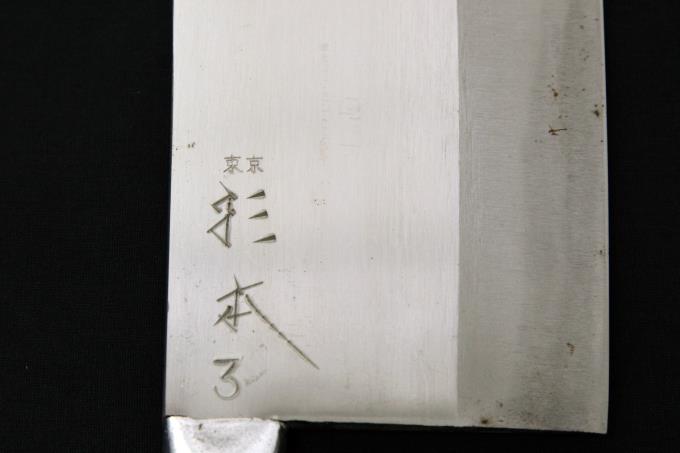 東京
杉
本
3